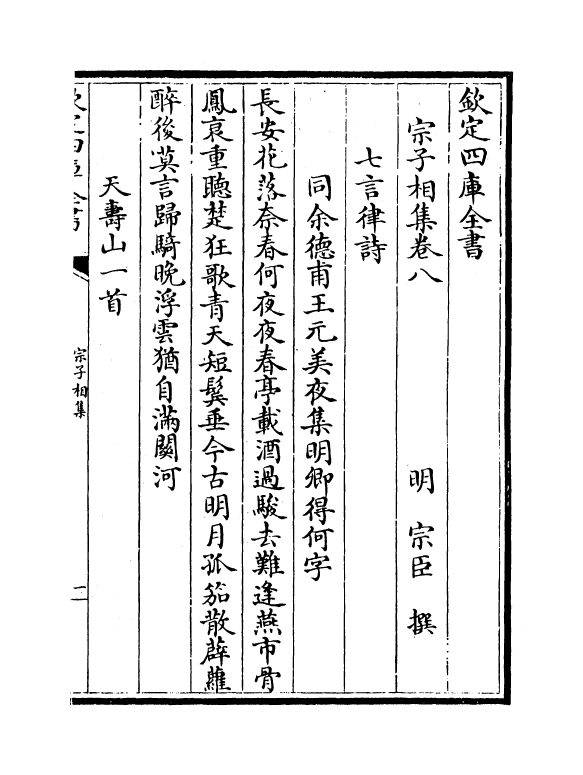 欽定四庫全書
宗子相集卷八
明 宗臣 撰
七言律詩
同余德甫王元美夜集明卿得何字
長安花落奈春何夜夜春亭載酒過駿去難逢燕市骨
鳳哀重聽楚狂歌青天短鬂垂今古明月孤笳散薜蘿
醉後莫言歸騎晚浮雲猶自滿闗河
天壽山一首
欽定四庫全書
宗子相集
一